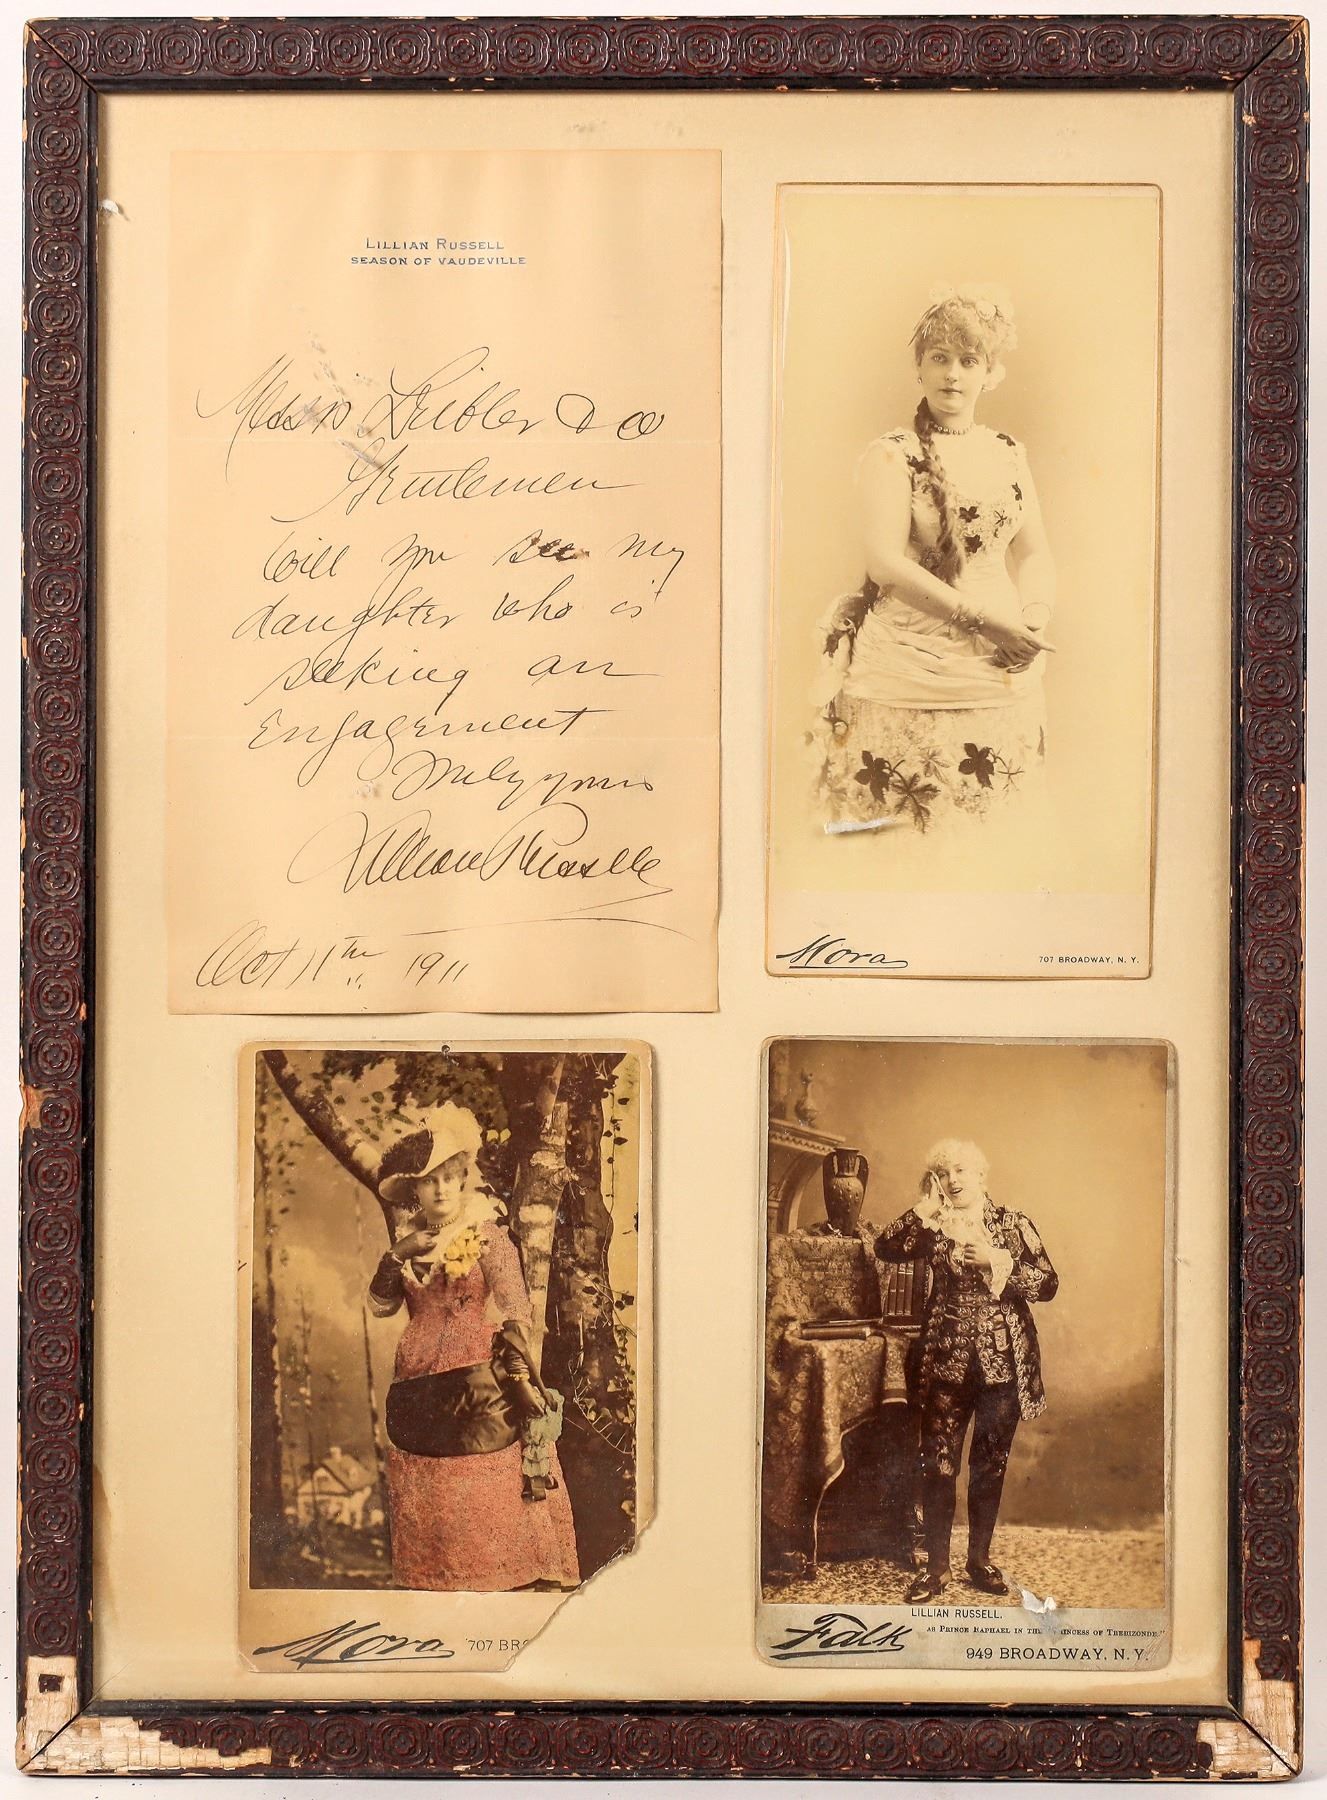 LILLIAN RUSSELL
SEASON OF VAUDEVILLE
Messrs Leibler & Co
Gentlemen
Will you see my
daughter who is
seeking an
Engagement
Truly yours
Lillian Russell
Oct 11th 1911
Mora
707 BROADWAY, N. Y.
Mora 707 BR
LILLIAN RUSSELL.
AS PRINCE RAPHAEL IN THE PRINCESS OF TREBIZONDE."
Falk
949 BROADWAY, N. Y.